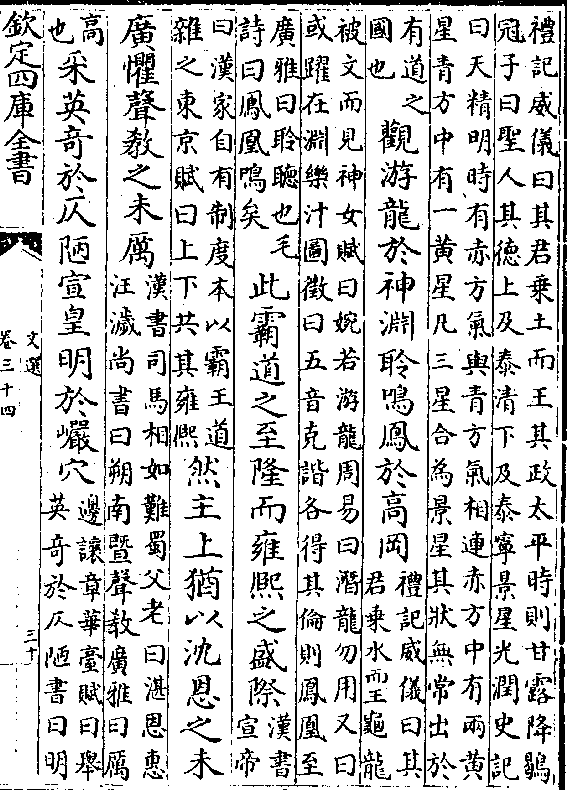 禮記威儀曰其君乗土而王其政太平時則甘露降鶡
冠子曰聖人其德上及泰清下及泰寧景星光潤史記
曰天精明時有赤方氣與青方氣相連赤方中有兩黃
星青方中有一黃星凡三星合為景星其狀無常出於
有道之
國也
觀游龍於神淵聆鳴鳳於高岡
禮記威儀曰其
君乗水而王龜龍
被文而見神女賦曰婉若游龍周易曰潛龍勿用又曰
或躍在淵樂汁圖徵曰五音克諧各得其倫則鳳凰至
廣雅曰聆聽也毛
詩曰鳳凰鳴矣
此霸道之至隆而雍熙之盛際
漢書
宣帝
曰漢家自有制度本以霸王道
雜之東京賦曰上下共其雍熙
然主上猶以沈恩之未
廣懼聲教之未厲
漢書司馬相如難蜀父老曰湛恩惠
汪濊尚書曰朔南暨聲教廣雅曰厲
高
也
采英奇於仄陋宣皇明於巖穴
邊讓章華臺賦曰舉
英奇於仄陋書曰明
欽定四庫全書
文選
卷三十四
三十